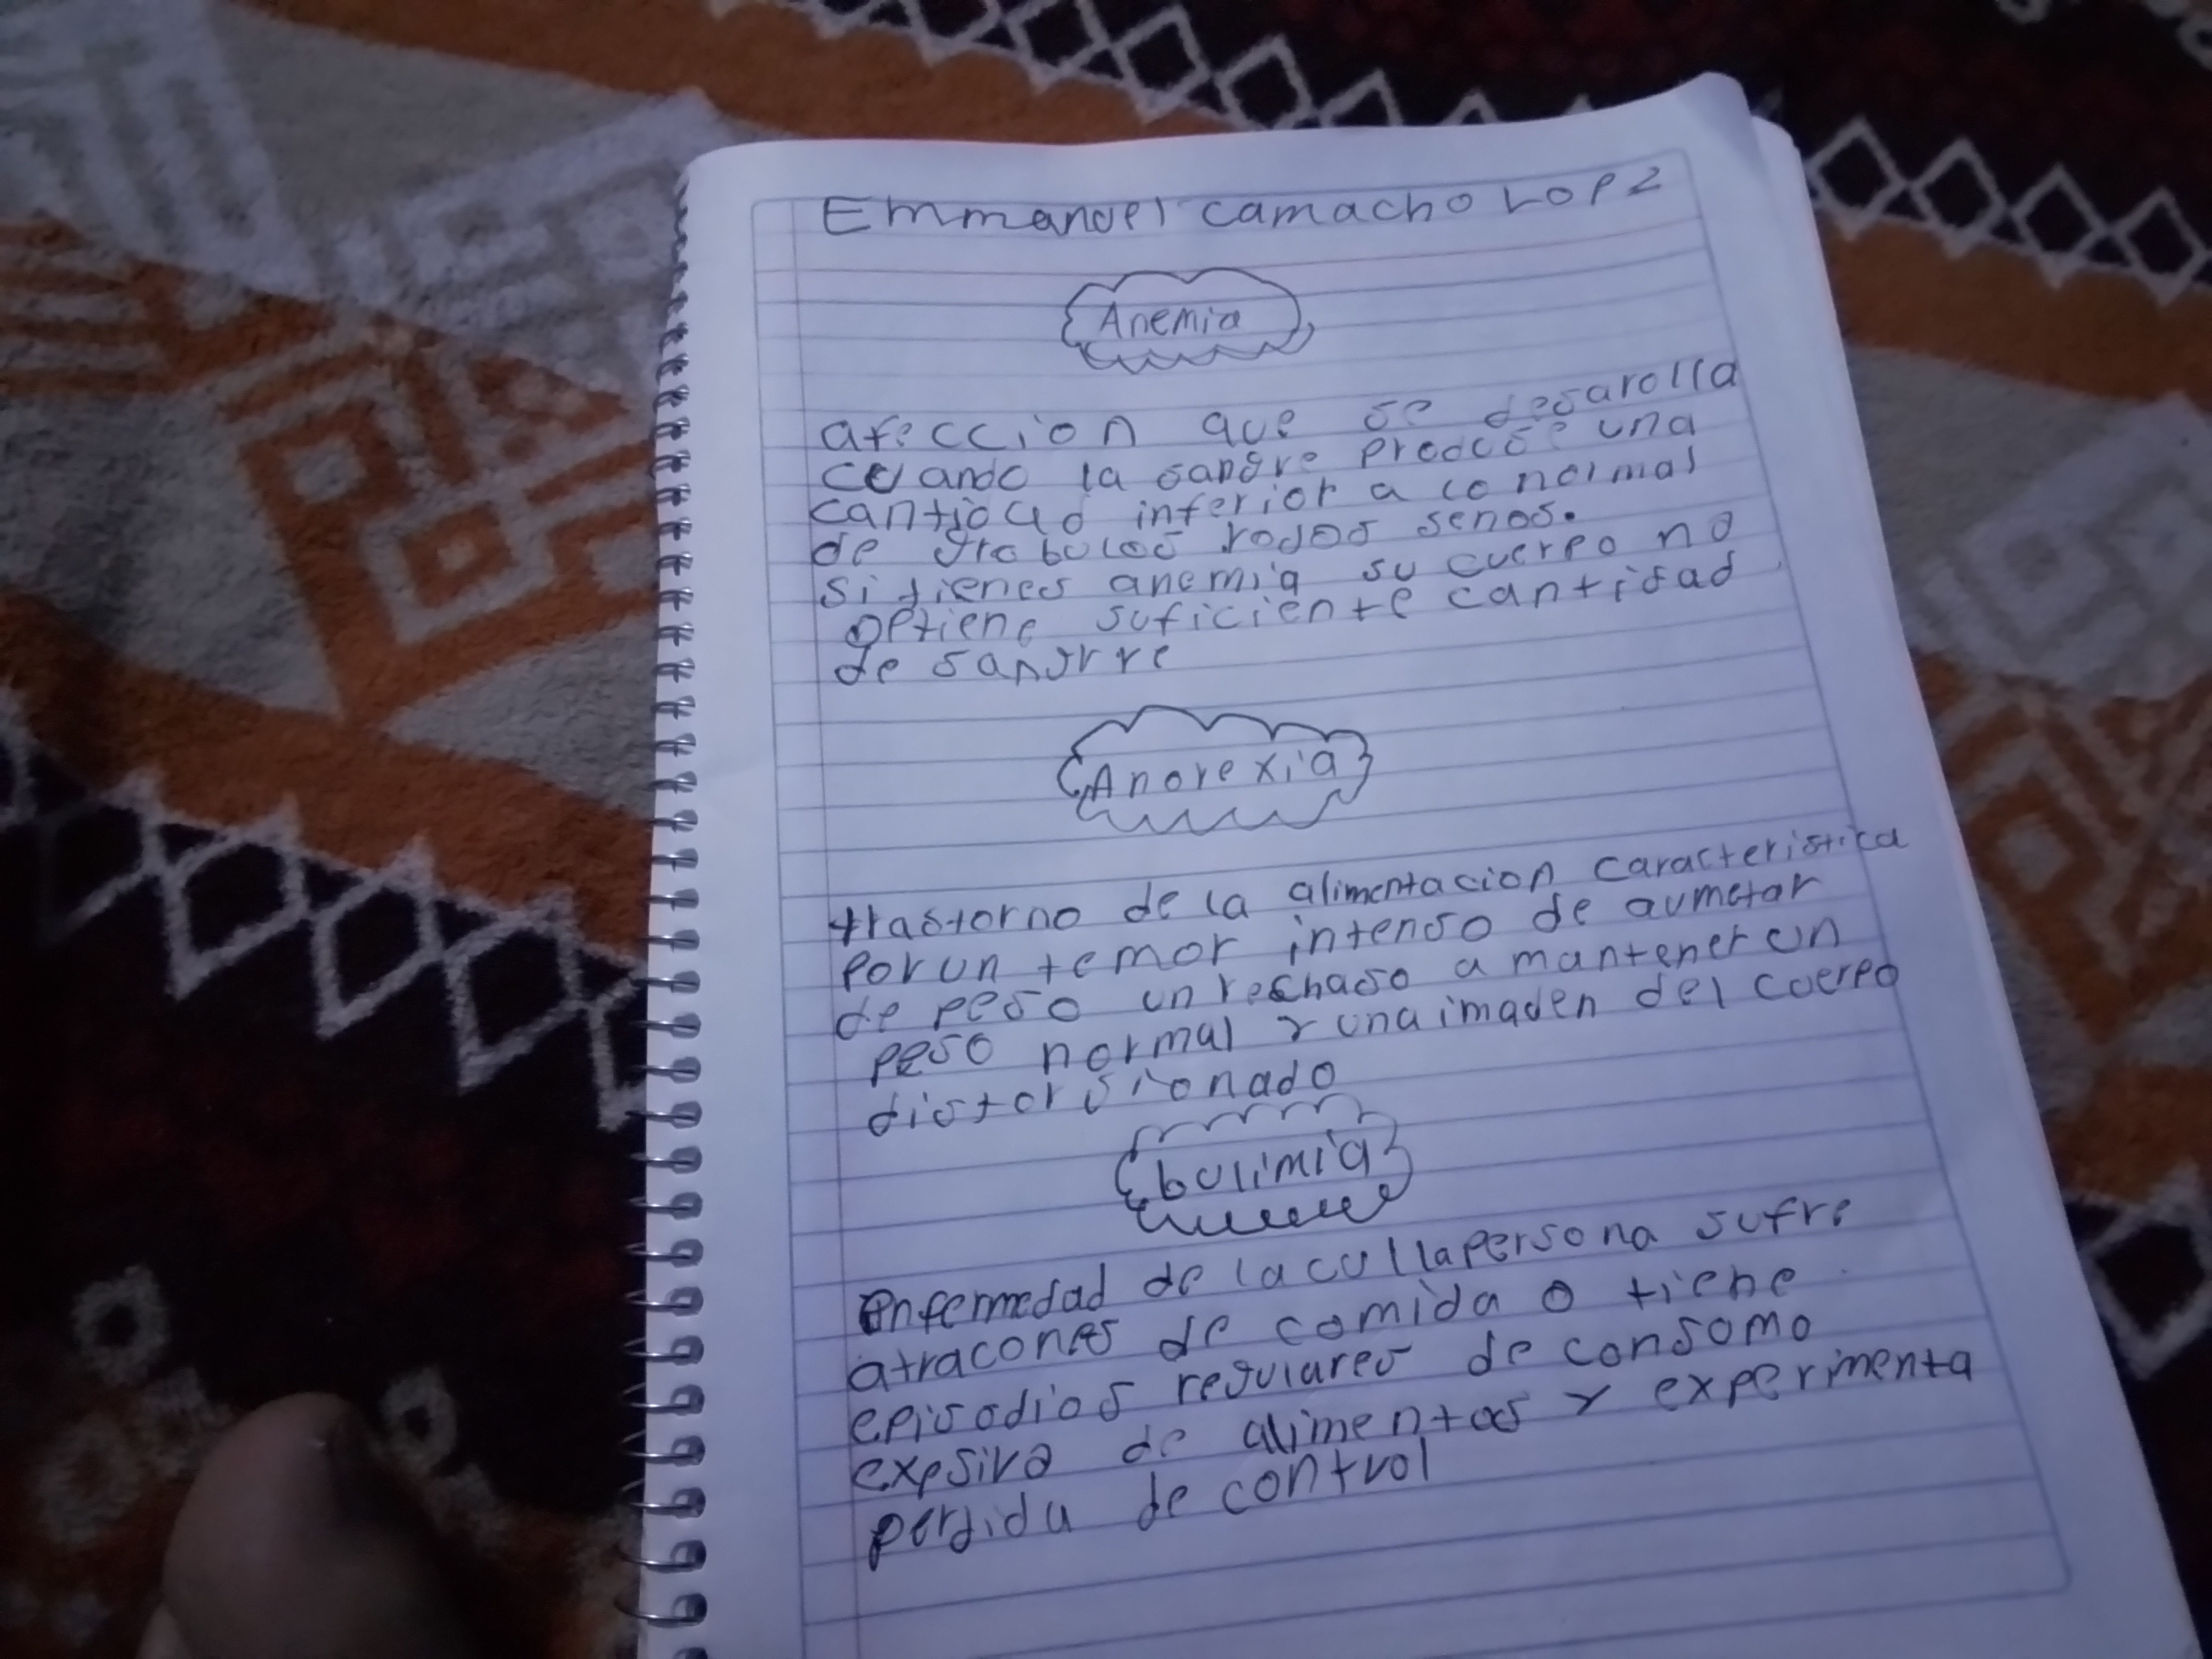 Emmanuel camacho Lopz
Anemia
afeccion que se desarolla
cuando la sangre produce una
cantidad inferior a lo normal
de grobulos rojos senos.
si tienes anemia su cuerpo no
optiene suficiente cantidad
de sangrre
Anorexia
trastorno de la alimentacion caracteristica
por un temor intenso de aumetar
de peso un rechaso a mantener un
peso normal y una imaden del cuerpo
distorsionado
bulimia
enfermedad de la cul la persona sufre
atracones de comida o tiene
episodios regulares de consomo
expsiva de alimentos y experimenta
perdida de control